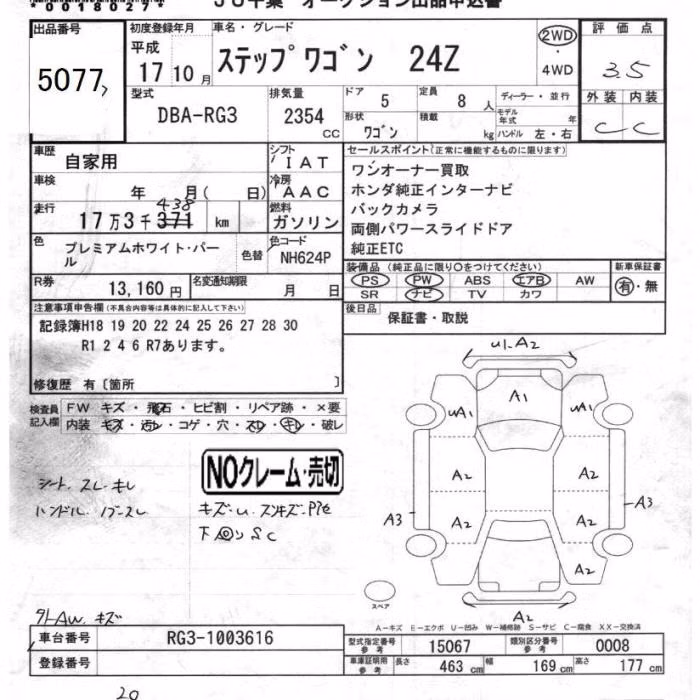 *00180274*
JU千葉 オークション出品申込書
出品番号
5077
初度登録年月
平成
17 10 月
車名・グレード
ステップワゴン 24Z
2WD
・
4WD
評価点
3.5
外装 内装
C C
型式
DBA-RG3
排気量
2354
CC
ドア
5
定員
8 人
ディーラー・並行
形状
ワゴン
積載
kg
モデル年式 年
ハンドル 左・右
車歴
自家用
シフト
IAT
車検
年 月( 日)
冷房
AAC
走行
438
17万3千371 km
燃料
ガソリン
色
プレミアムホワイト・パール
色替
色コード
NH624P
R券
13,160 円
名変通知期限
月 日
セールスポイント(正常に機能するものに限ります)
ワンオーナー買取
ホンダ純正インターナビ
バックカメラ
両側パワースライドドア
純正ETC
装備品(純正品に限り○をつけてください)
PS PW ABS エアB AW
SR ナビ TV カワ
新車保証書
有・無
後日品
保証書・取説
注意事項申告欄(不具合内容等は具体的に記入して下さい)
記録簿H18 19 20 22 24 25 26 27 28 30
R1 2 4 6 R7あります。
修復歴 有〔箇所 〕
検査員記入欄
FW キズ・飛石・ヒビ割・リペア跡・×要
内装 キズ・汚レ・コゲ・穴・スレ・キレ・破レ
NOクレーム・売切
シート スレ・キレ
ハンドル
下回りSC
外AW キズ
U1.A2
A1
UA1
UA1
A2
A2
A3
A2
A2
A3
A2
A2
スペア
A-キズ E-エクボ U-凹み W-補修跡 S-サビ C-腐食 XX-交換済
車台番号
RG3-1003616
登録番号
型式指定番号
参考
15067
類別区分番号
参考
0008
車庫証明用
参考
長さ
463 cm
幅
169 cm
高さ
177 cm
20